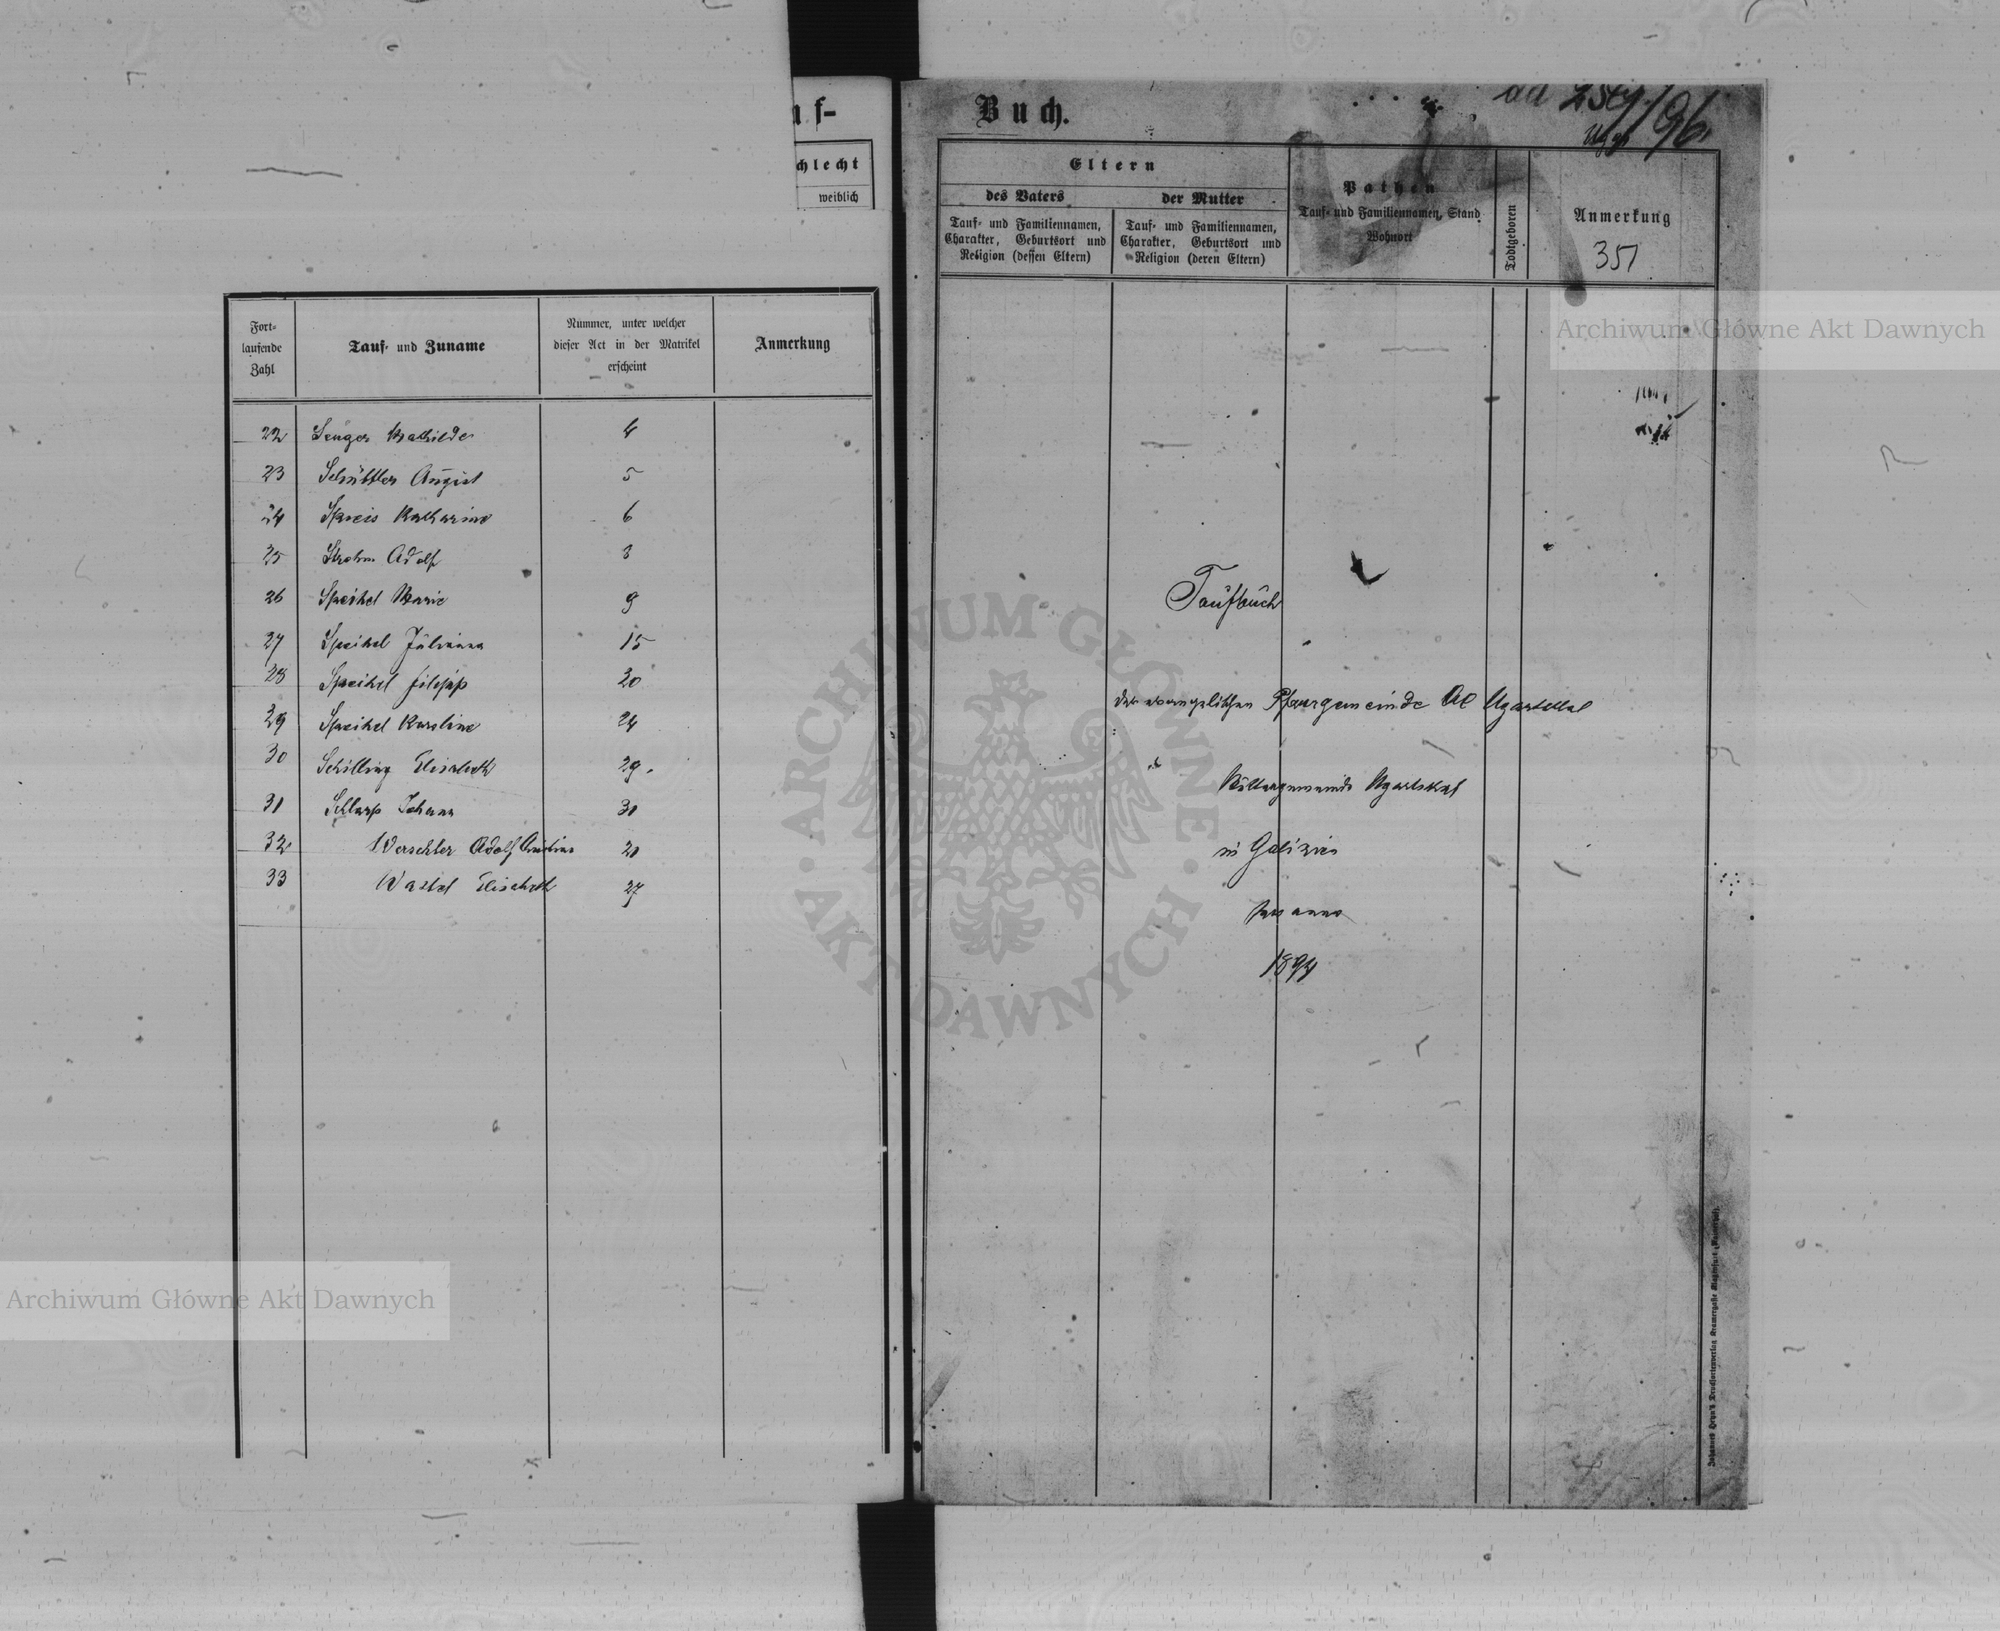 uf-
chlecht
weiblich
Fort-
laufende
Zahl
Tauf- und Zuname
Nummer, unter welcher
dieser Act in der Matrikel
erscheint
Anmerkung
22 Senger Mathilde 4
23 Schüttler August 5
24 Spreis Katharine 6
25 Strohm Adolf 3
26 Speichel Marie 9
27 Speichel Julianna 15
28 Speichel Filipp 20
29 Speichel Karoline 24
30 Schilling Elisabeth 29
31 Schlarp Johann 30
32 Werschler Adolf 21
33 Wastel Elisabeth 27
Buch.
ad /96
Eltern
des Vaters
der Mutter
Tauf- und Familiennamen,
Charakter, Geburtsort und
Religion (dessen Eltern)
Tauf- und Familiennamen,
Charakter, Geburtsort und
Religion (deren Eltern)
Pathen
Tauf- und Familiennamen, Stand
Wohnort
Todtgeboren
Anmerkung
351
Taufbuch
der evangelischen Pfarrgemeinde AC Ugartsthal
Muttergemeinde Ugartsthal
in Galizien
pro anno
1894
Archiwum Główne Akt Dawnych
Archiwum Główne Akt Dawnych
ARCHIWUM GŁÓWNE · AKT DAWNYCH ·